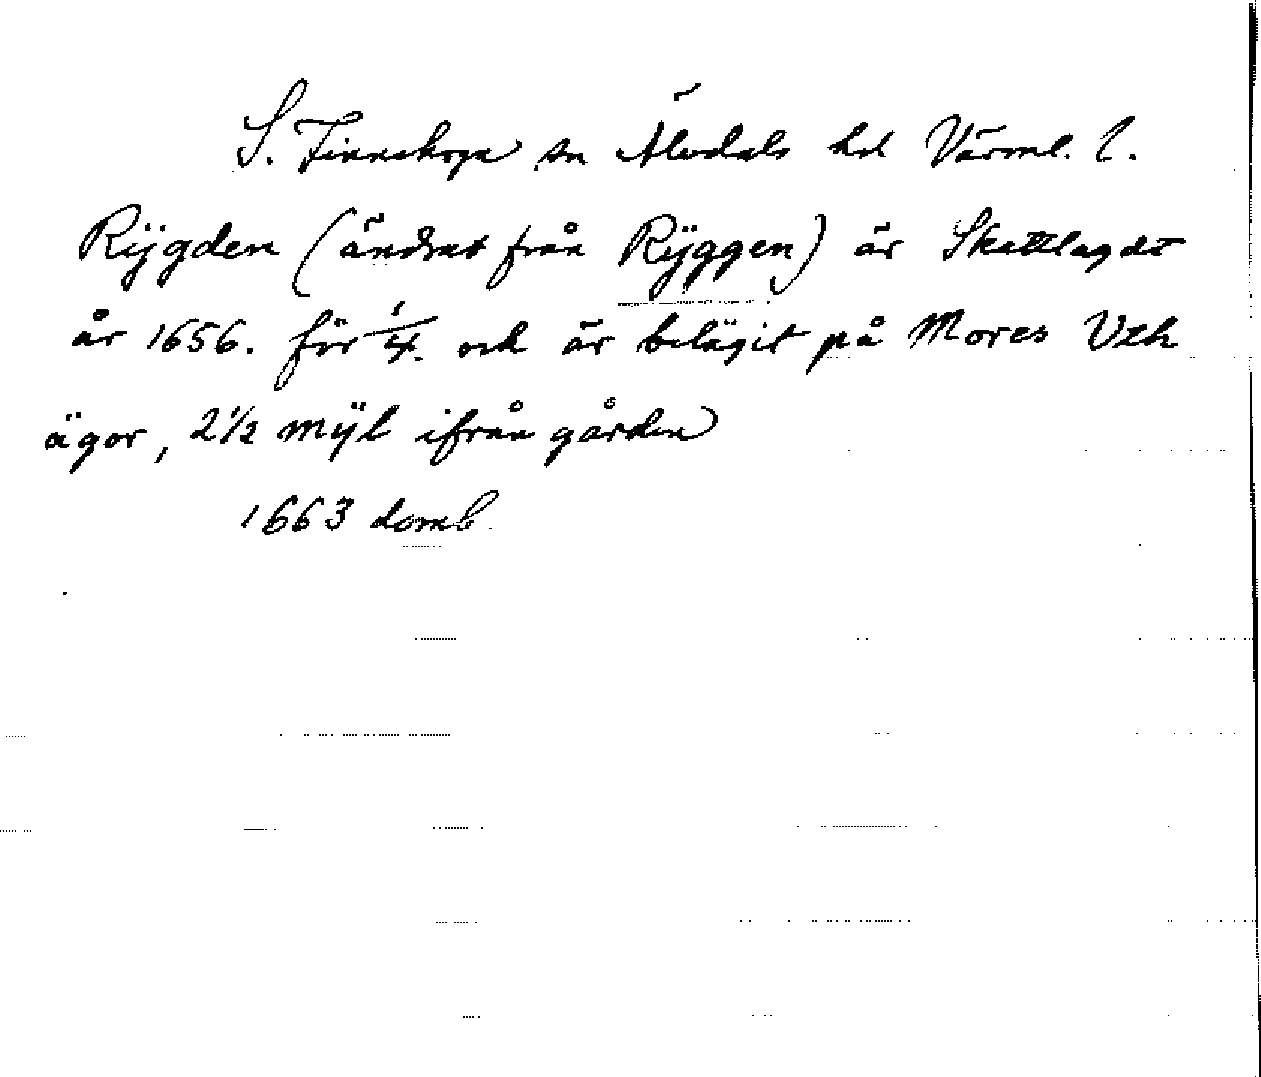 S. Finnskoga sn Älvdals hd Värml. l.
Rÿgden (ändrat från Rÿggen) är Skattlagdt
år 1656. för 1/4. och är belägit på Mores Uth
ägor, 2½ mÿl ifrån gården
1663 domb.